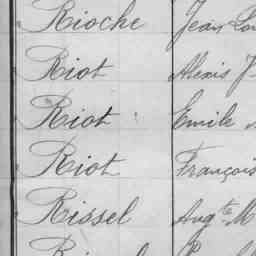 Rioche Jean
Riot Alexis
Riot Emile
Riot François
Rissel Augte M